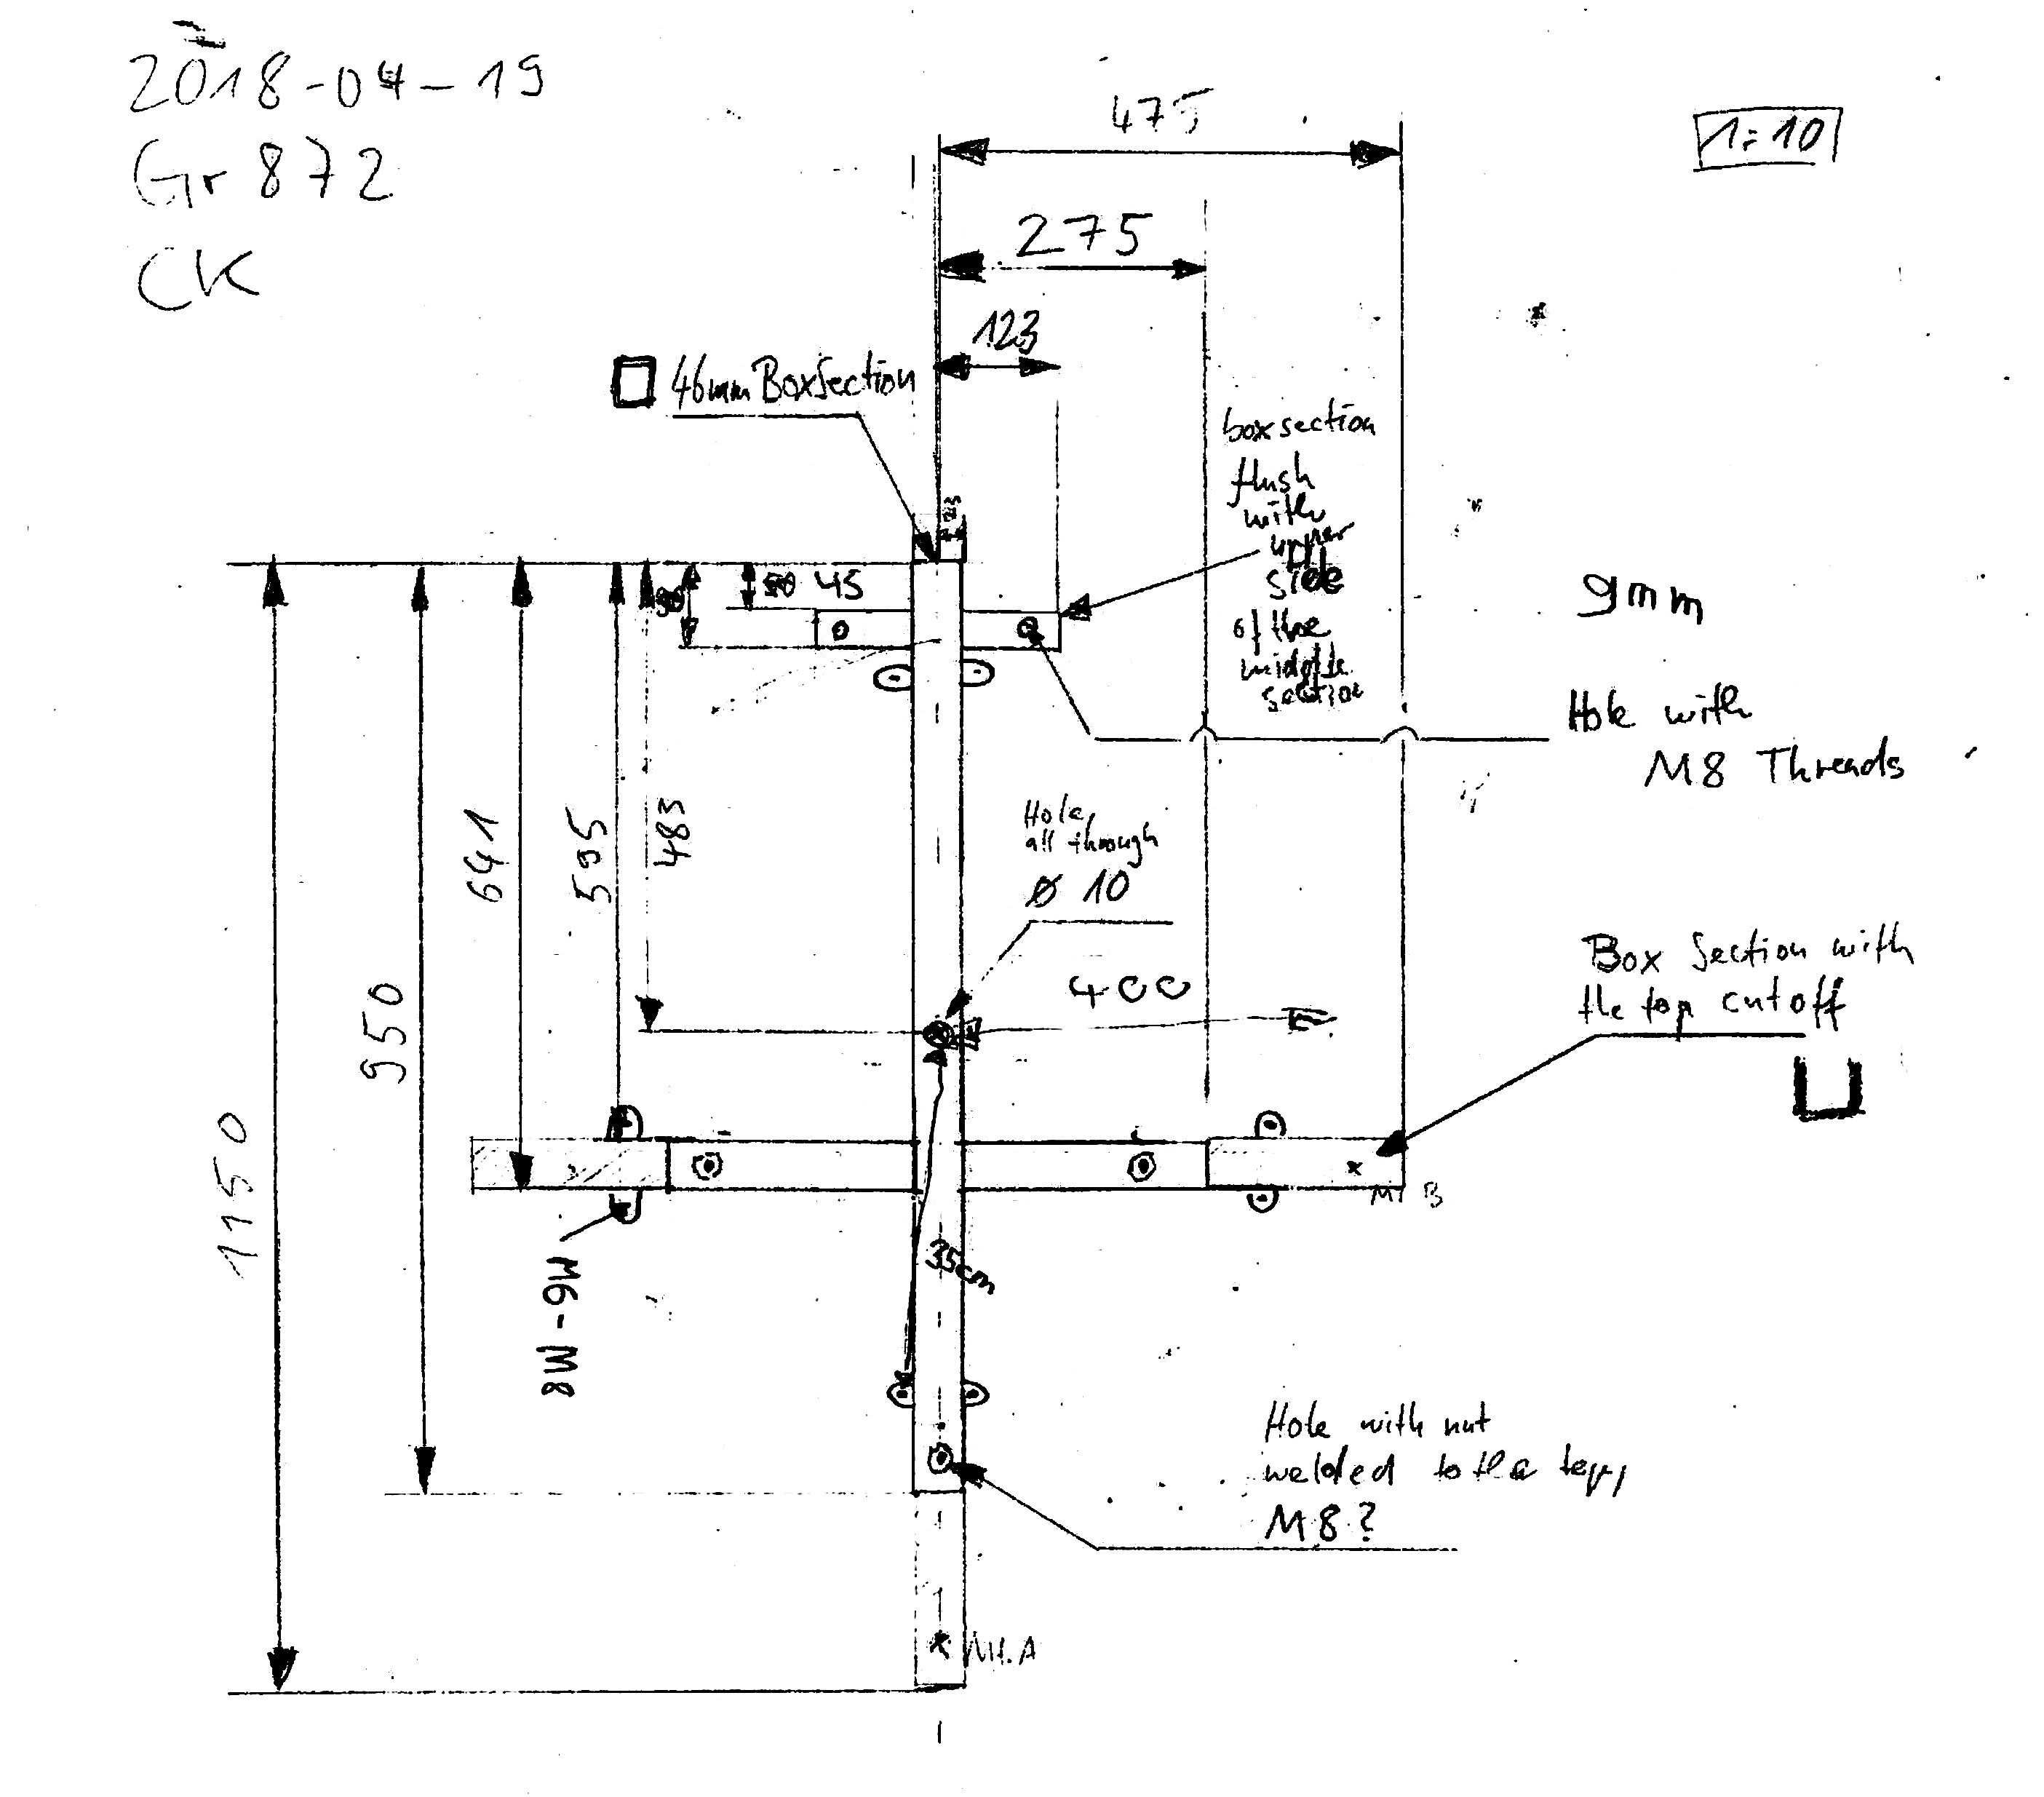 2018-04-19
Gr 872
CK
475
1:10
275
123
46mm BoxSection
box section
flush
with
upper
side
of the
middle
section
23
45
9mm
Hole with
M8 Threads
641
595
483
Hole
all through
Ø 10
400
950
Box Section with
the top cutoff
1150
M6-M8
35cm
Hole with nut
welded to the top,
M8?